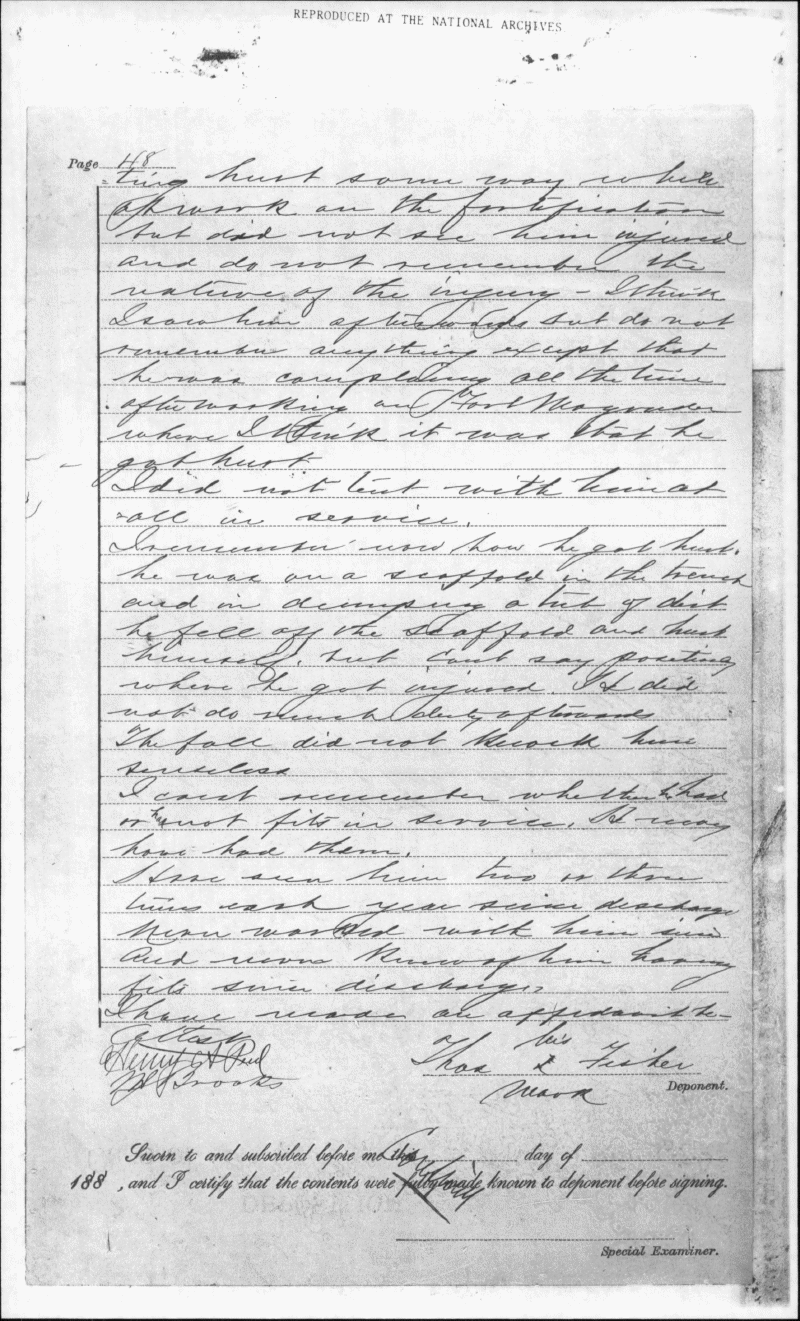 REPRODUCED AT THE NATIONAL ARCHIVES
Page 48
=ting hurt some way while
at work on the fortification
but did not see him injured
and do not remember the
nature of the injury - I think
I saw him afterwards but do not
remember anything except that
he was complaining all the time
after working on Fort Magruder
where I think it was that he
got hurt
I did not tent with him at
all in service.
I remember now how he got hurt.
he was on a scaffold in the trench
and in dumping a tub of dirt
he fell off the scaffold and hurt
himself. but cant say positively
where he got injured. He did
not do much duty afterwards
The fall did not knock him
senseless
I cant remember whether he had
or had not fits in service. He may
have had them.
Have seen him two or three
times each year since discharge
Never worked with him since
And never knew of him having
fits since discharge.
I have made an affidavit he-
Attest
Henry A Reid
Brooks
his
Thos X Fisher
mark
Deponent.
Sworn to and subscribed before me this day of
188 , and I certify that the contents were fully made known to deponent before signing.
Special Examiner.